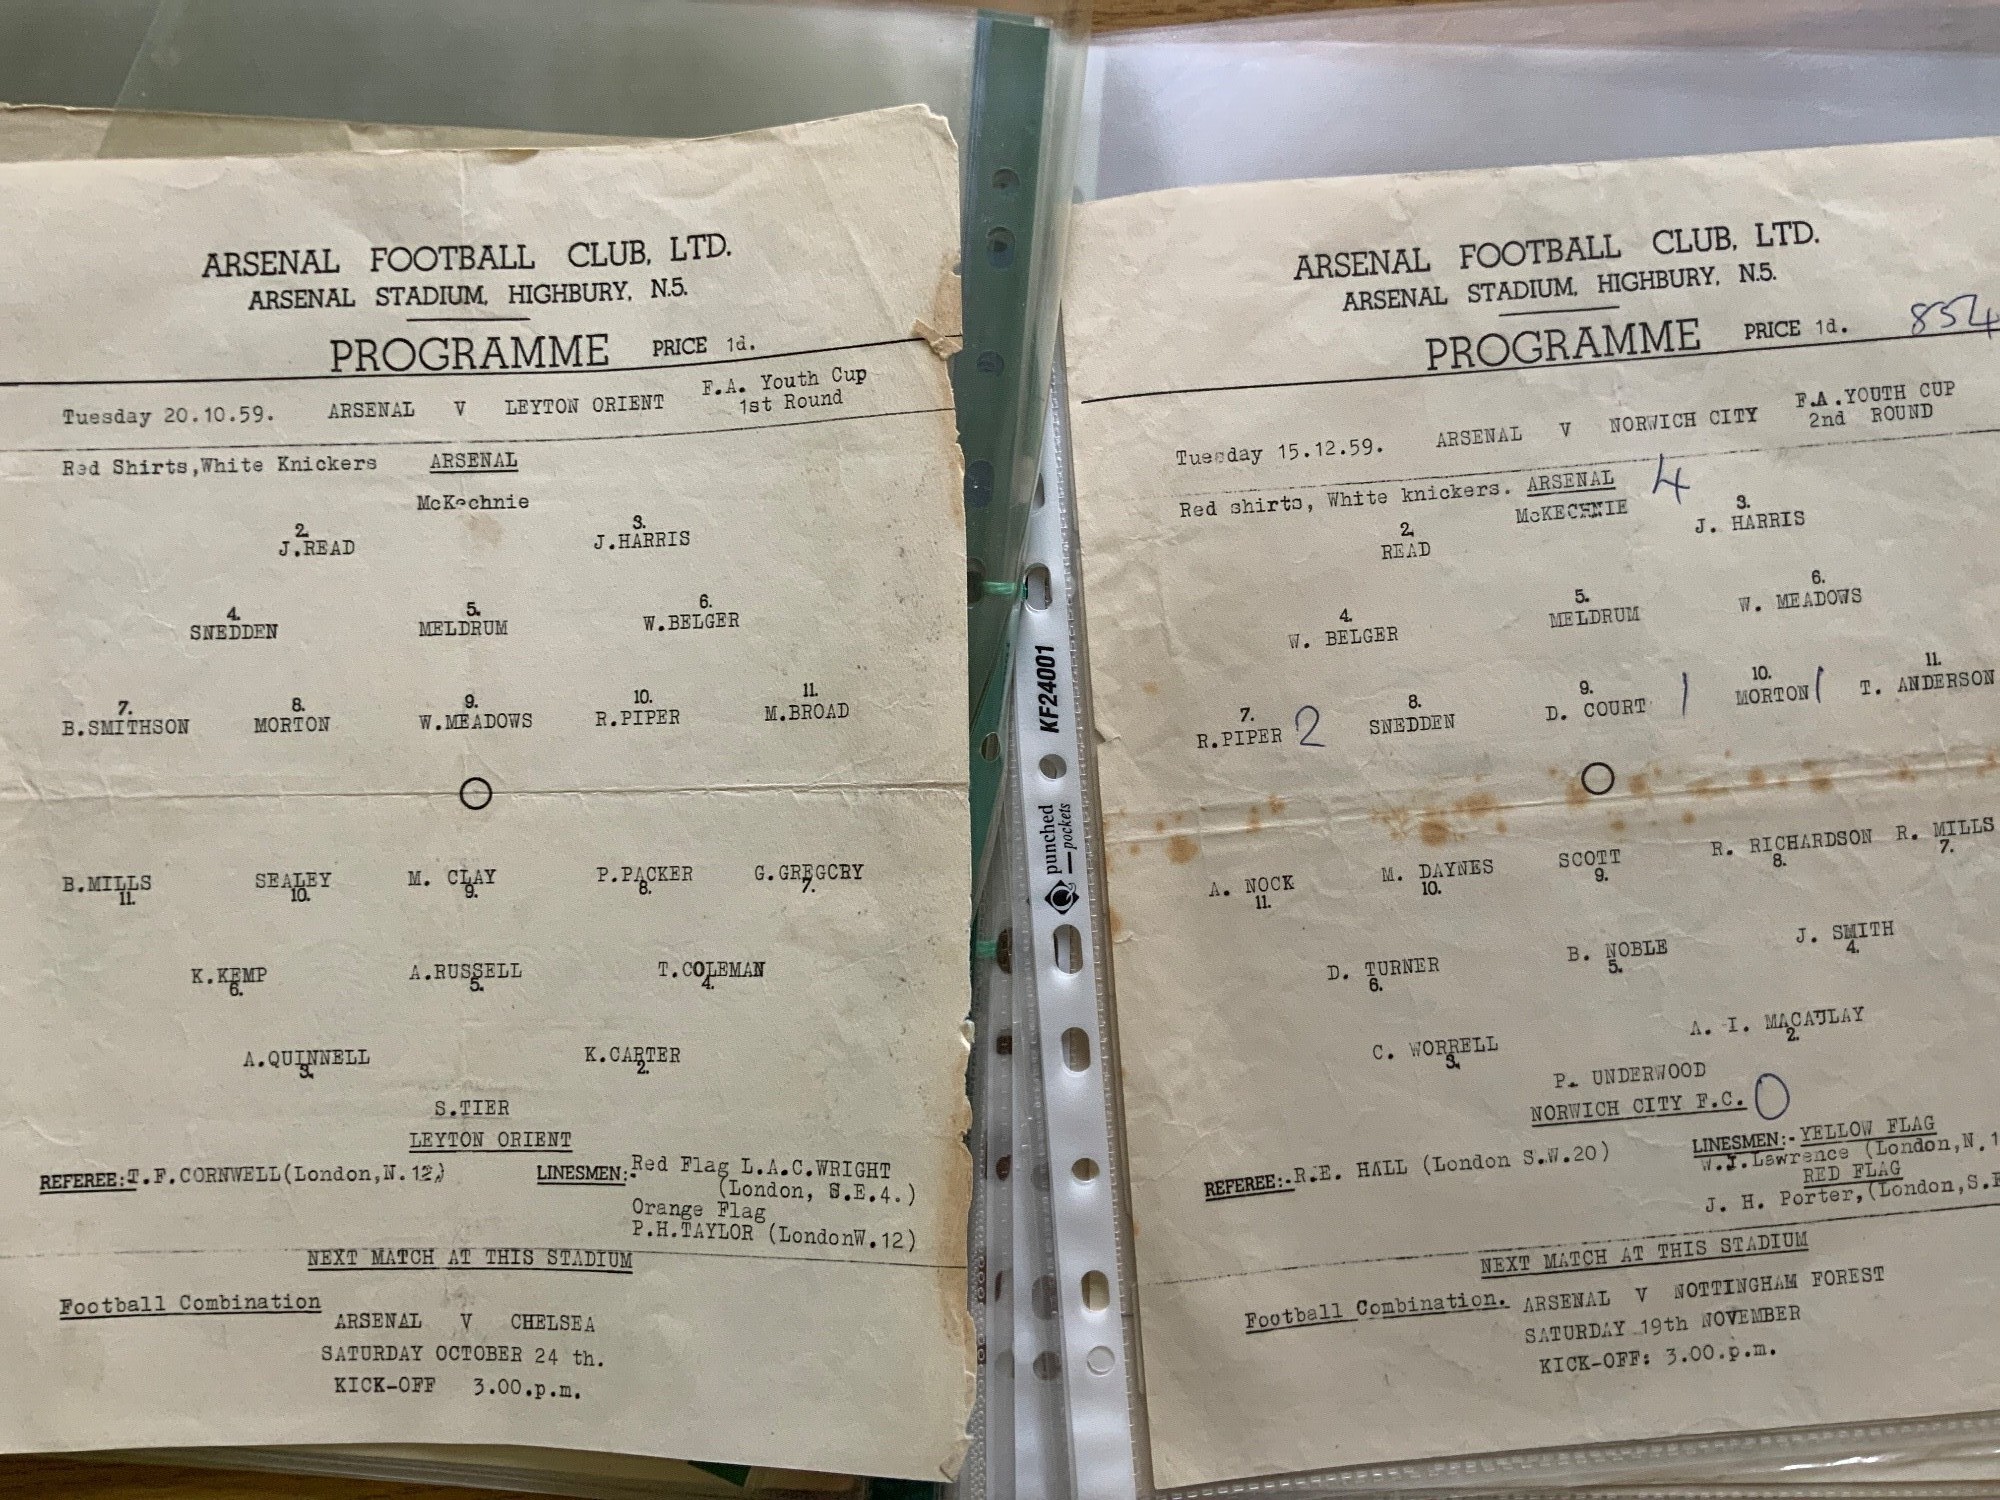 ARSENAL FOOTBALL CLUB, LTD.
ARSENAL STADIUM, HIGHBURY, N.5.
PROGRAMME PRICE 1d.
Tuesday 20.10.59. ARSENAL V LEYTON ORIENT F.A. Youth Cup
1st Round
Red Shirts,White Knickers ARSENAL
McKechnie
2. 3.
J.READ J.HARRIS
4. 5. 6.
SNEDDEN MELDRUM W.BELGER
7. 8. 9. 10. 11.
B.SMITHSON MORTON W.MEADOWS R.PIPER M.BROAD
B.MILLS SEALEY M. CLAY P.PACKER G.GREGCRY
11. 10. 9. 8. 7.
K.KEMP A.RUSSELL T.COLEMAN
6. 5. 4.
A.QUINNELL K.CARTER
3. 2.
S.TIER
LEYTON ORIENT
REFEREE:- T.F.CORNWELL(London,N.12.) LINESMEN:- Red Flag L.A.C.WRIGHT
(London, S.E.4.)
Orange Flag
P.H.TAYLOR (LondonW.12)
NEXT MATCH AT THIS STADIUM
Football Combination
ARSENAL V CHELSEA
SATURDAY OCTOBER 24 th.
KICK-OFF 3.00.p.m.
KF24001
punched
pockets
ARSENAL FOOTBALL CLUB, LTD.
ARSENAL STADIUM, HIGHBURY, N.5.
PROGRAMME PRICE 1d. 854
Tuesday 15.12.59. ARSENAL V NORWICH CITY F.A.YOUTH CUP
2nd ROUND
Red shirts, White knickers. ARSENAL 4
McKECHNIE
2. 3.
READ J. HARRIS
4. 5. 6.
W. BELGER MELDRUM W. MEADOWS
7. 8. 9. 10. 11.
R.PIPER 2 SNEDDEN D. COURT 1 MORTON 1 T. ANDERSON
A. NOCK M. DAYNES SCOTT R. RICHARDSON R. MILLS
11. 10. 9. 8. 7.
D. TURNER B. NOBLE J. SMITH
6. 5. 4.
C. WORRELL A. I. MACAULAY
3. 2.
P. UNDERWOOD
NORWICH CITY F.C. 0
REFEREE:- R.E. HALL (London S.W.20) LINESMEN:- YELLOW FLAG
W.J.Lawrence (London,N.1
RED FLAG
J. H. Porter,(London,S.E
NEXT MATCH AT THIS STADIUM
Football Combination. ARSENAL V NOTTINGHAM FOREST
SATURDAY 19th NOVEMBER
KICK-OFF: 3.00.p.m.